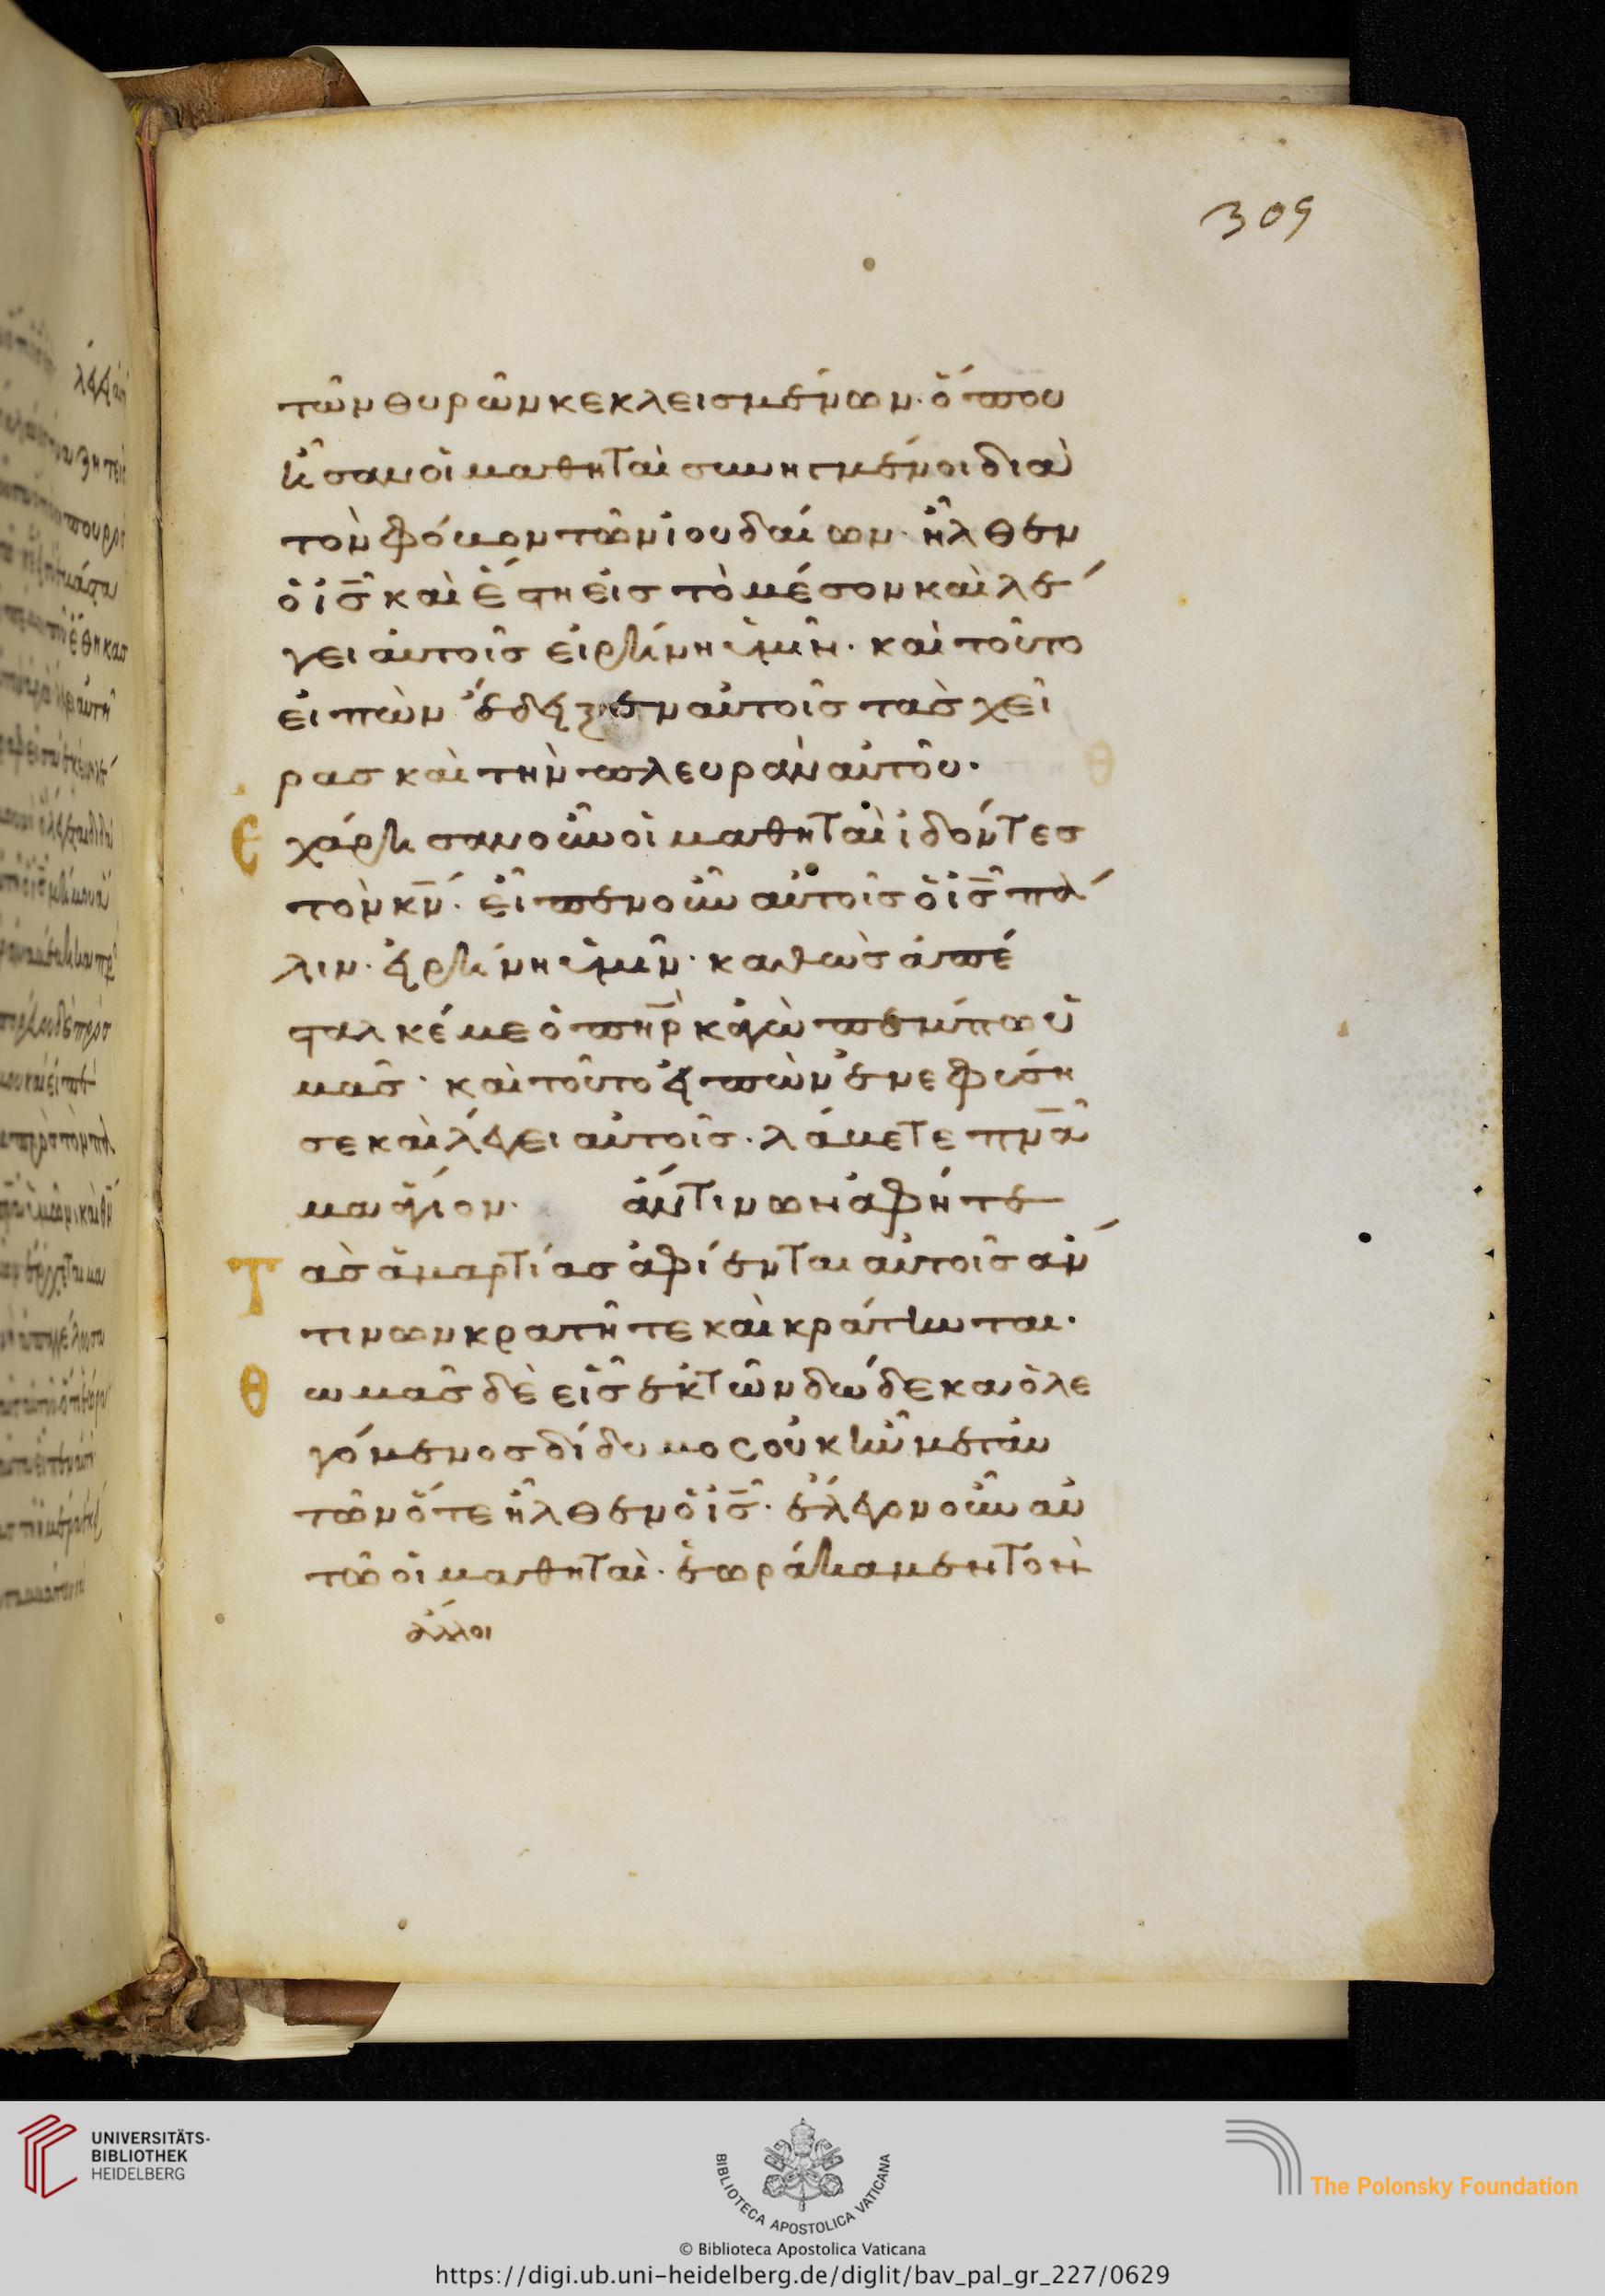 309
τῶν θυρῶν κεκλεισμένων· ὅπου
ἦσαν οἱ μαθηταὶ συνηγμένοι διὰ
τὸν φόβον τῶν ἰουδαίων· ἦλθεν
ὁ ἰ̅ς̅ καὶ ἔστη εἰς τὸ μέσον καὶ λέ
γει αὐτοῖς εἰρήνη ὑμῖν· καὶ τοῦτο
εἰπὼν ἔδειξεν αὐτοῖς τὰς χεῖ
ρας καὶ τὴν πλευρὰν αὐτοῦ·
Ἐχάρησαν οὖν οἱ μαθηταὶ ἰδόντες
τὸν κ̅ν̅· εἶπεν οὖν αὐτοῖς ὁ ἰ̅ς̅ πά
λιν· εἰρήνη ὑμῖν· καθὼς ἀπέ
σταλκέ με ὁ π̅η̅ρ̅ κἀγὼ πέμπω ὑ
μᾶς· καὶ τοῦτο εἰπὼν ἐνεφύση
σε καὶ λέγει αὐτοῖς· λάβετε π̅ν̅α̅
μα ἅγιον· ἄν τινων ἀφῆτε
Τὰς ἁμαρτίας ἀφίενται αὐτοῖς ἄν
τινων κρατῆτε καὶ κράτηνται·
Θωμᾶς δὲ εἷς ἐκ τῶν δώδεκα ὁ λε
γόμενος δίδυμος οὐκ ἦν μετ' αὐ
τῶν ὅτε ἦλθεν ὁ ἰ̅ς̅· ἔλεγον οὖν αὐ
τῶ οἱ μαθηταὶ· ἑωράκαμεν τὸν
ἄλλοι
UNIVERSITÄTS-
BIBLIOTHEK
HEIDELBERG
BIBLIOTECA APOSTOLICA VATICANA
The Polonsky Foundation
© Biblioteca Apostolica Vaticana
https://digi.ub.uni-heidelberg.de/diglit/bav_pal_gr_227/0629